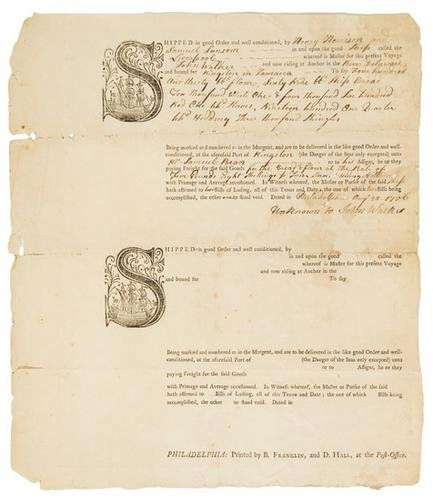 SHIPPED in good Order and well conditioned, by Henry Harrison and
Samuel Sansom in and upon the good Ship called the
Liverpool whereof is Master for this present Voyage
John Walker and now riding at Anchor in the River Delaware
and bound for Kingston in Jamaica To say Four hundred
Ten thousand & four thousand hundred
Red Oak hundred One Quarter
Three thousand Shingles
Being marked and numbered as in the Margent, and are to be delivered in the like good Order and well-
conditioned, at the aforesaid Port of Kingston (the Danger of the Seas only excepted) unto
Mr Samuel Dean or to his Assigns, he or they
paying Freight for the said Goods at the Rate of
Pounds Eight Shillings
with Primage and Average accustomed. In Witness whereof, the Master or Purser of the said Ship
hath affirmed to Bills of Lading, all of this Tenor and Date; the one of which Bills being
accomplished, the other to stand void. Dated in Philadelphia
Unknown to John Walker
SHIPPED in good Order and well conditioned, by
in and upon the good called the
whereof is Master for this present Voyage
and now riding at Anchor in the
and bound for To say
Being marked and numbered as in the Margent, and are to be delivered in the like good Order and well-
conditioned, at the aforesaid Port of (the Danger of the Seas only excepted) unto
or to Assigns, he or they
paying Freight for the said Goods
with Primage and Average accustomed. In Witness whereof, the Master or Purser of the said
hath affirmed to Bills of Lading, all of this Tenor and Date; the one of which Bills being
accomplished, the other to stand void. Dated in
PHILADELPHIA: Printed by B. FRANKLIN, and D. HALL, at the Post-Office.